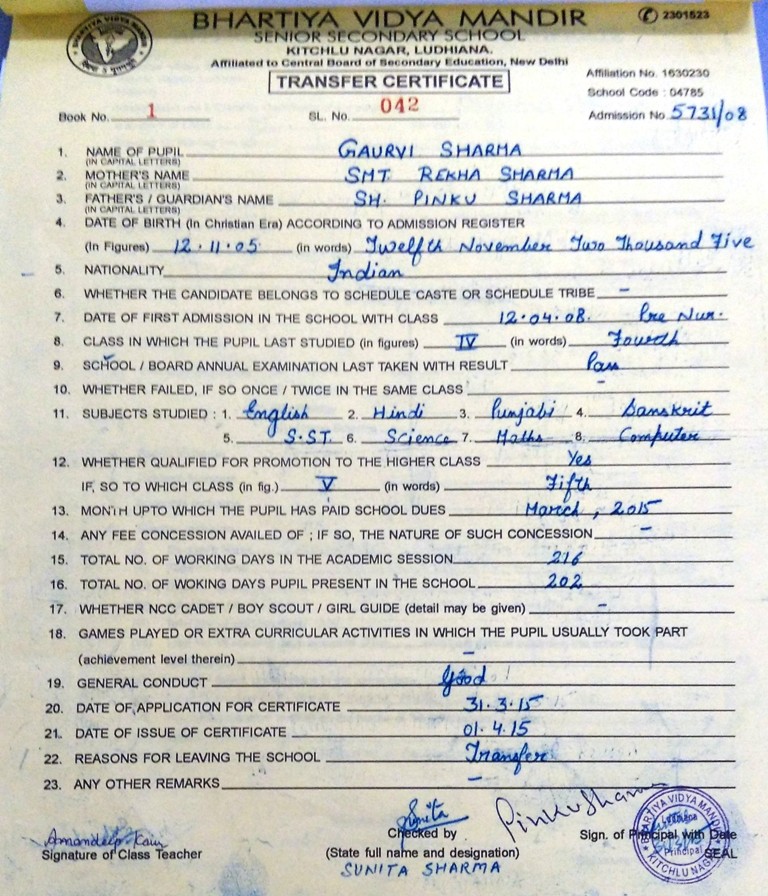 BHARTIYA VIDYA MANDIR
✆ 2301523
SENIOR SECONDARY SCHOOL
KITCHLU NAGAR, LUDHIANA.
Affiliated to Central Board of Secondary Education, New Delhi
TRANSFER CERTIFICATE
Affiliation No. 1630230
School Code : 04785
Book No. 1 SL. No. 042 Admission No 5731/08
1. NAME OF PUPIL GAURVI SHARMA
(IN CAPITAL LETTERS)
2. MOTHER'S NAME SMT. REKHA SHARMA
(IN CAPITAL LETTERS)
3. FATHER'S / GUARDIAN'S NAME SH. PINKU SHARMA
(IN CAPITAL LETTERS)
4. DATE OF BIRTH (In Christian Era) ACCORDING TO ADMISSION REGISTER
(In Figures) 12.11.05 (in words) Twelfth November Two Thousand Five
5. NATIONALITY Indian
6. WHETHER THE CANDIDATE BELONGS TO SCHEDULE CASTE OR SCHEDULE TRIBE –
7. DATE OF FIRST ADMISSION IN THE SCHOOL WITH CLASS 12.04.08. Pre Nur.
8. CLASS IN WHICH THE PUPIL LAST STUDIED (in figures) IV (in words) Fourth
9. SCHOOL / BOARD ANNUAL EXAMINATION LAST TAKEN WITH RESULT Pass
10. WHETHER FAILED, IF SO ONCE / TWICE IN THE SAME CLASS –
11. SUBJECTS STUDIED : 1. English 2. Hindi 3. Punjabi 4. Sanskrit
5. S.ST. 6. Science 7. Maths 8. Computer
12. WHETHER QUALIFIED FOR PROMOTION TO THE HIGHER CLASS Yes
IF, SO TO WHICH CLASS (in fig.) V (in words) Fifth
13. MONTH UPTO WHICH THE PUPIL HAS PAID SCHOOL DUES March, 2015
14. ANY FEE CONCESSION AVAILED OF ; IF SO, THE NATURE OF SUCH CONCESSION –
15. TOTAL NO. OF WORKING DAYS IN THE ACADEMIC SESSION 216
16. TOTAL NO. OF WOKING DAYS PUPIL PRESENT IN THE SCHOOL 202
17. WHETHER NCC CADET / BOY SCOUT / GIRL GUIDE (detail may be given) –
18. GAMES PLAYED OR EXTRA CURRICULAR ACTIVITIES IN WHICH THE PUPIL USUALLY TOOK PART
(achievement level therein) –
19. GENERAL CONDUCT Good
20. DATE OF APPLICATION FOR CERTIFICATE 31.3.15
21. DATE OF ISSUE OF CERTIFICATE 01.4.15
22. REASONS FOR LEAVING THE SCHOOL Transfer
23. ANY OTHER REMARKS –
Amandeep Kaur Sunita Pinku Sharma
Signature of Class Teacher Checked by Sign. of Principal with Date
(State full name and designation) SEAL
SUNITA SHARMA
BHARTIYA VIDYA MANDIR
Principal
KITCHLU NAGAR